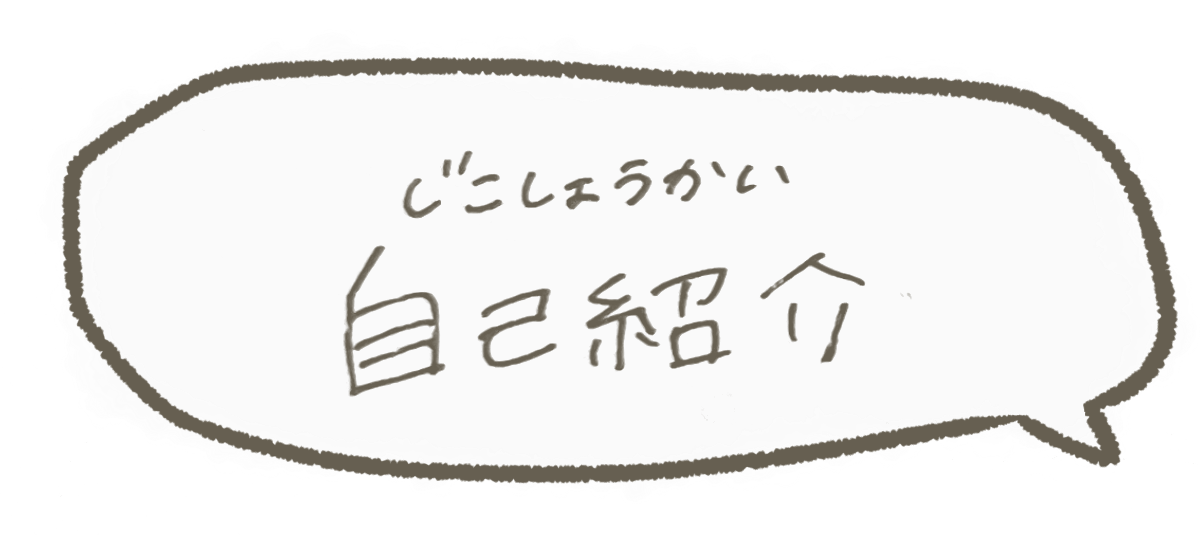 じこしょうかい
自己紹介